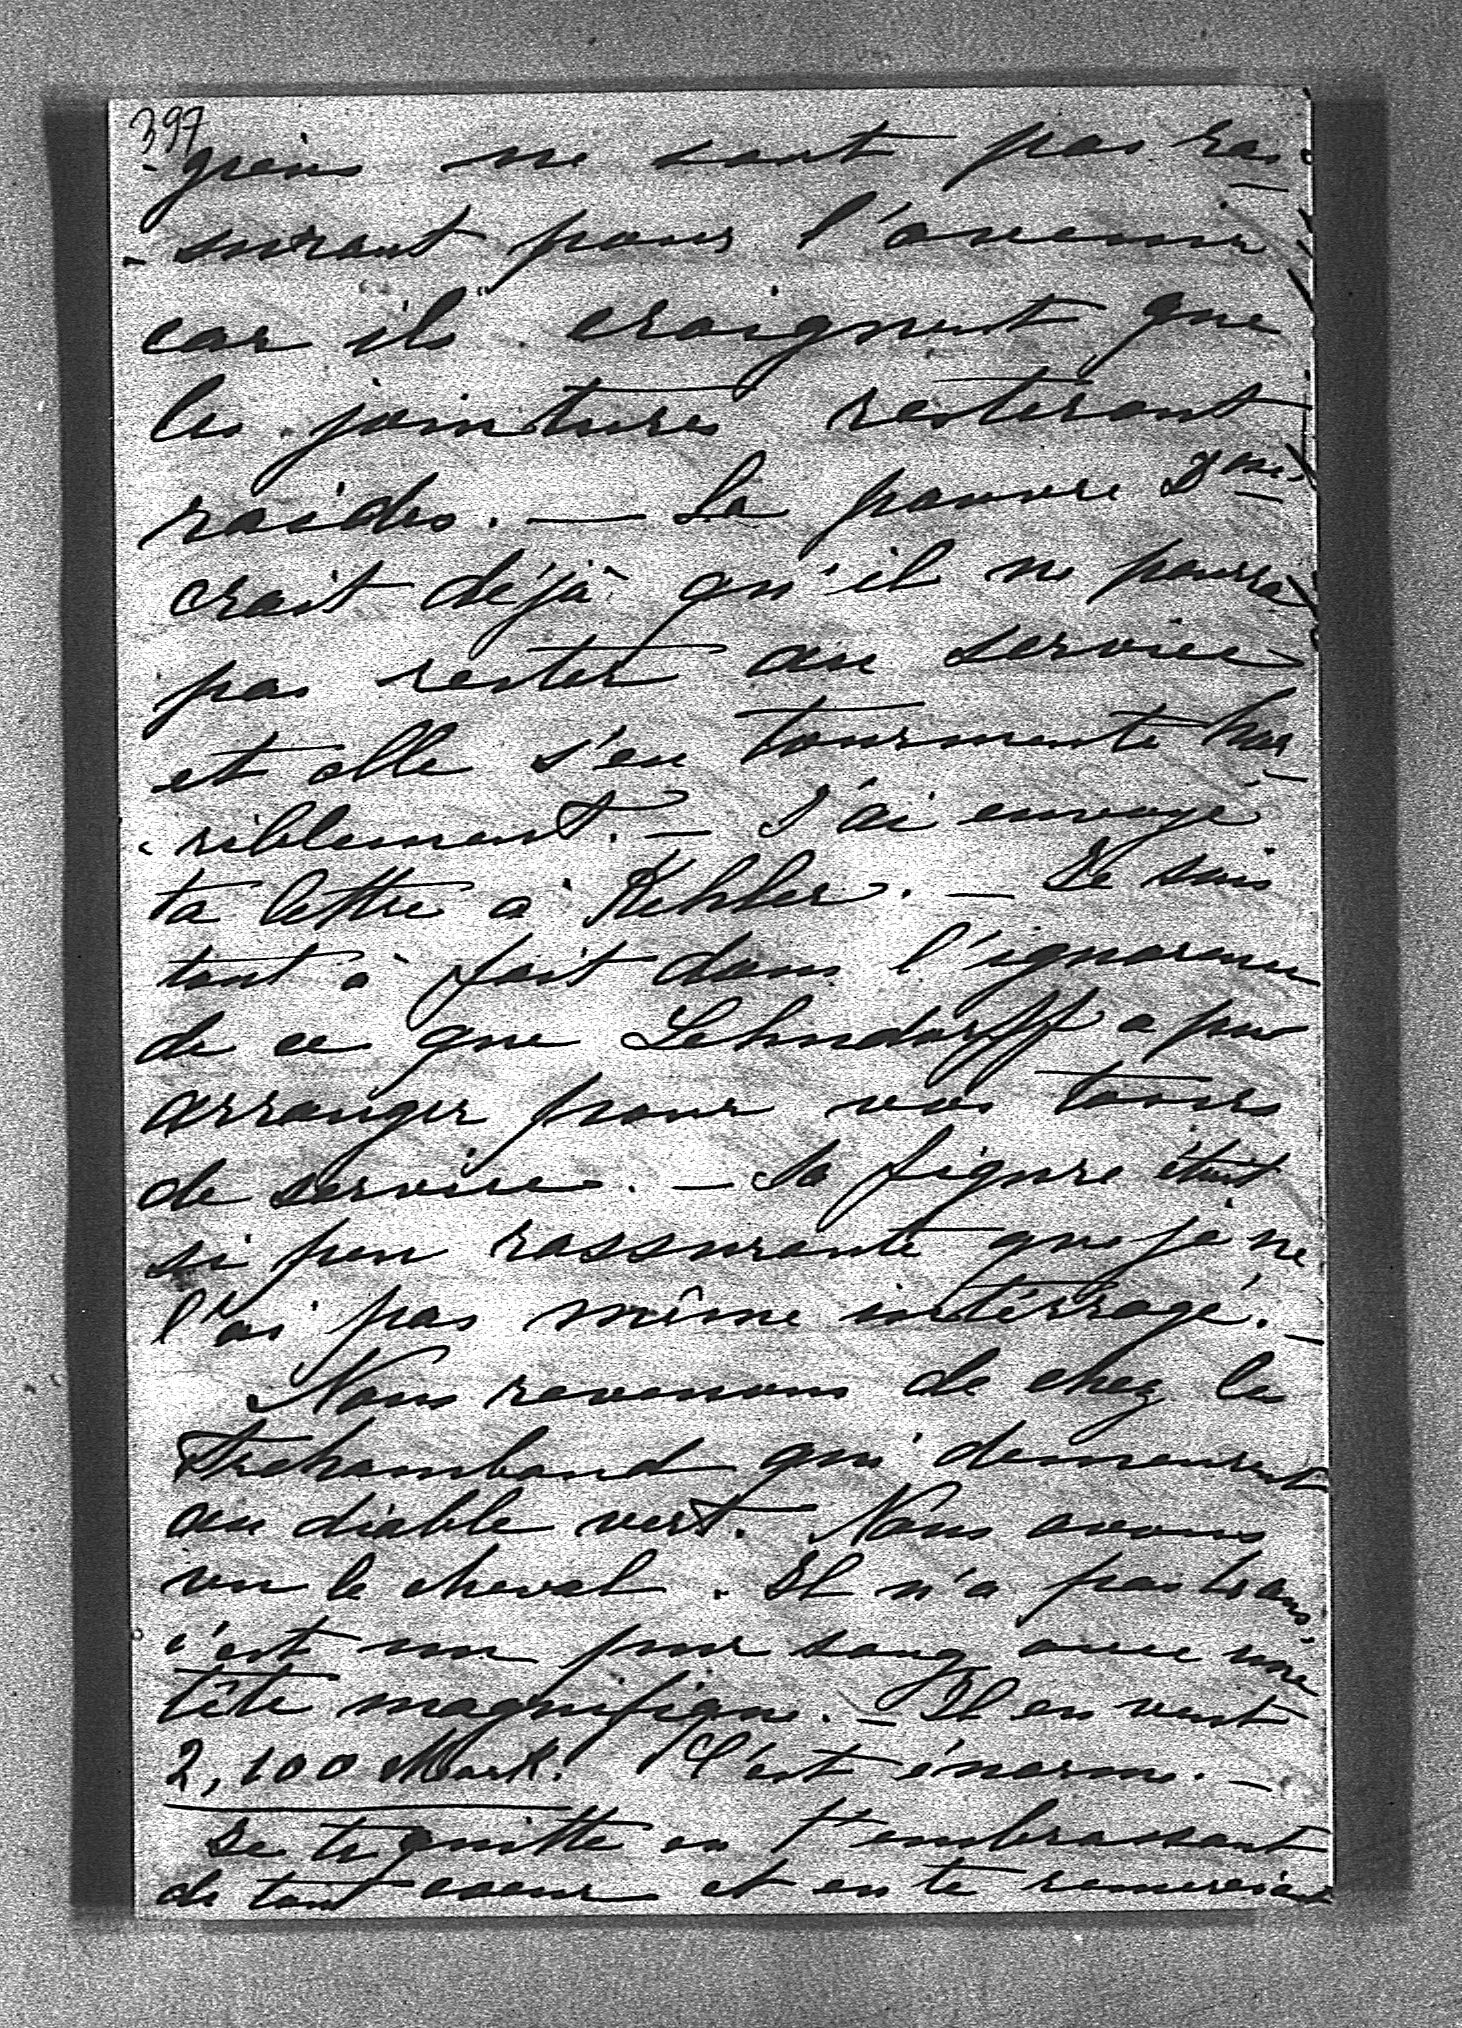 397
-giens ne sont pas ras-
-surant pour l'avenir
car ils craignent que
les jointures resteront
raides. — La pauvre
croit déjà qu'il ne pourra
pas rester au service
et elle s'en tourmente hor-
-riblement. — J'ai envoyé
ta lettre à Kehler. — Je suis
tout à fait dans l'ignorance
de ce que Lehndorff a pu
arranger pour vos tours
de service. — Sa figure était
si peu rassurante que je ne
l'ai pas même intérrogé. —
Nous revenons de chez les
qui demeurent
au diable vert. Nous avons
vu le cheval. Il n'a pas
c'est un pur sang avec une
tête magnifique. — Il en veut
2,100 Mark. C'est énorme. —
Je te quitte en t'embrassant
de tout coeur et en te remerciant